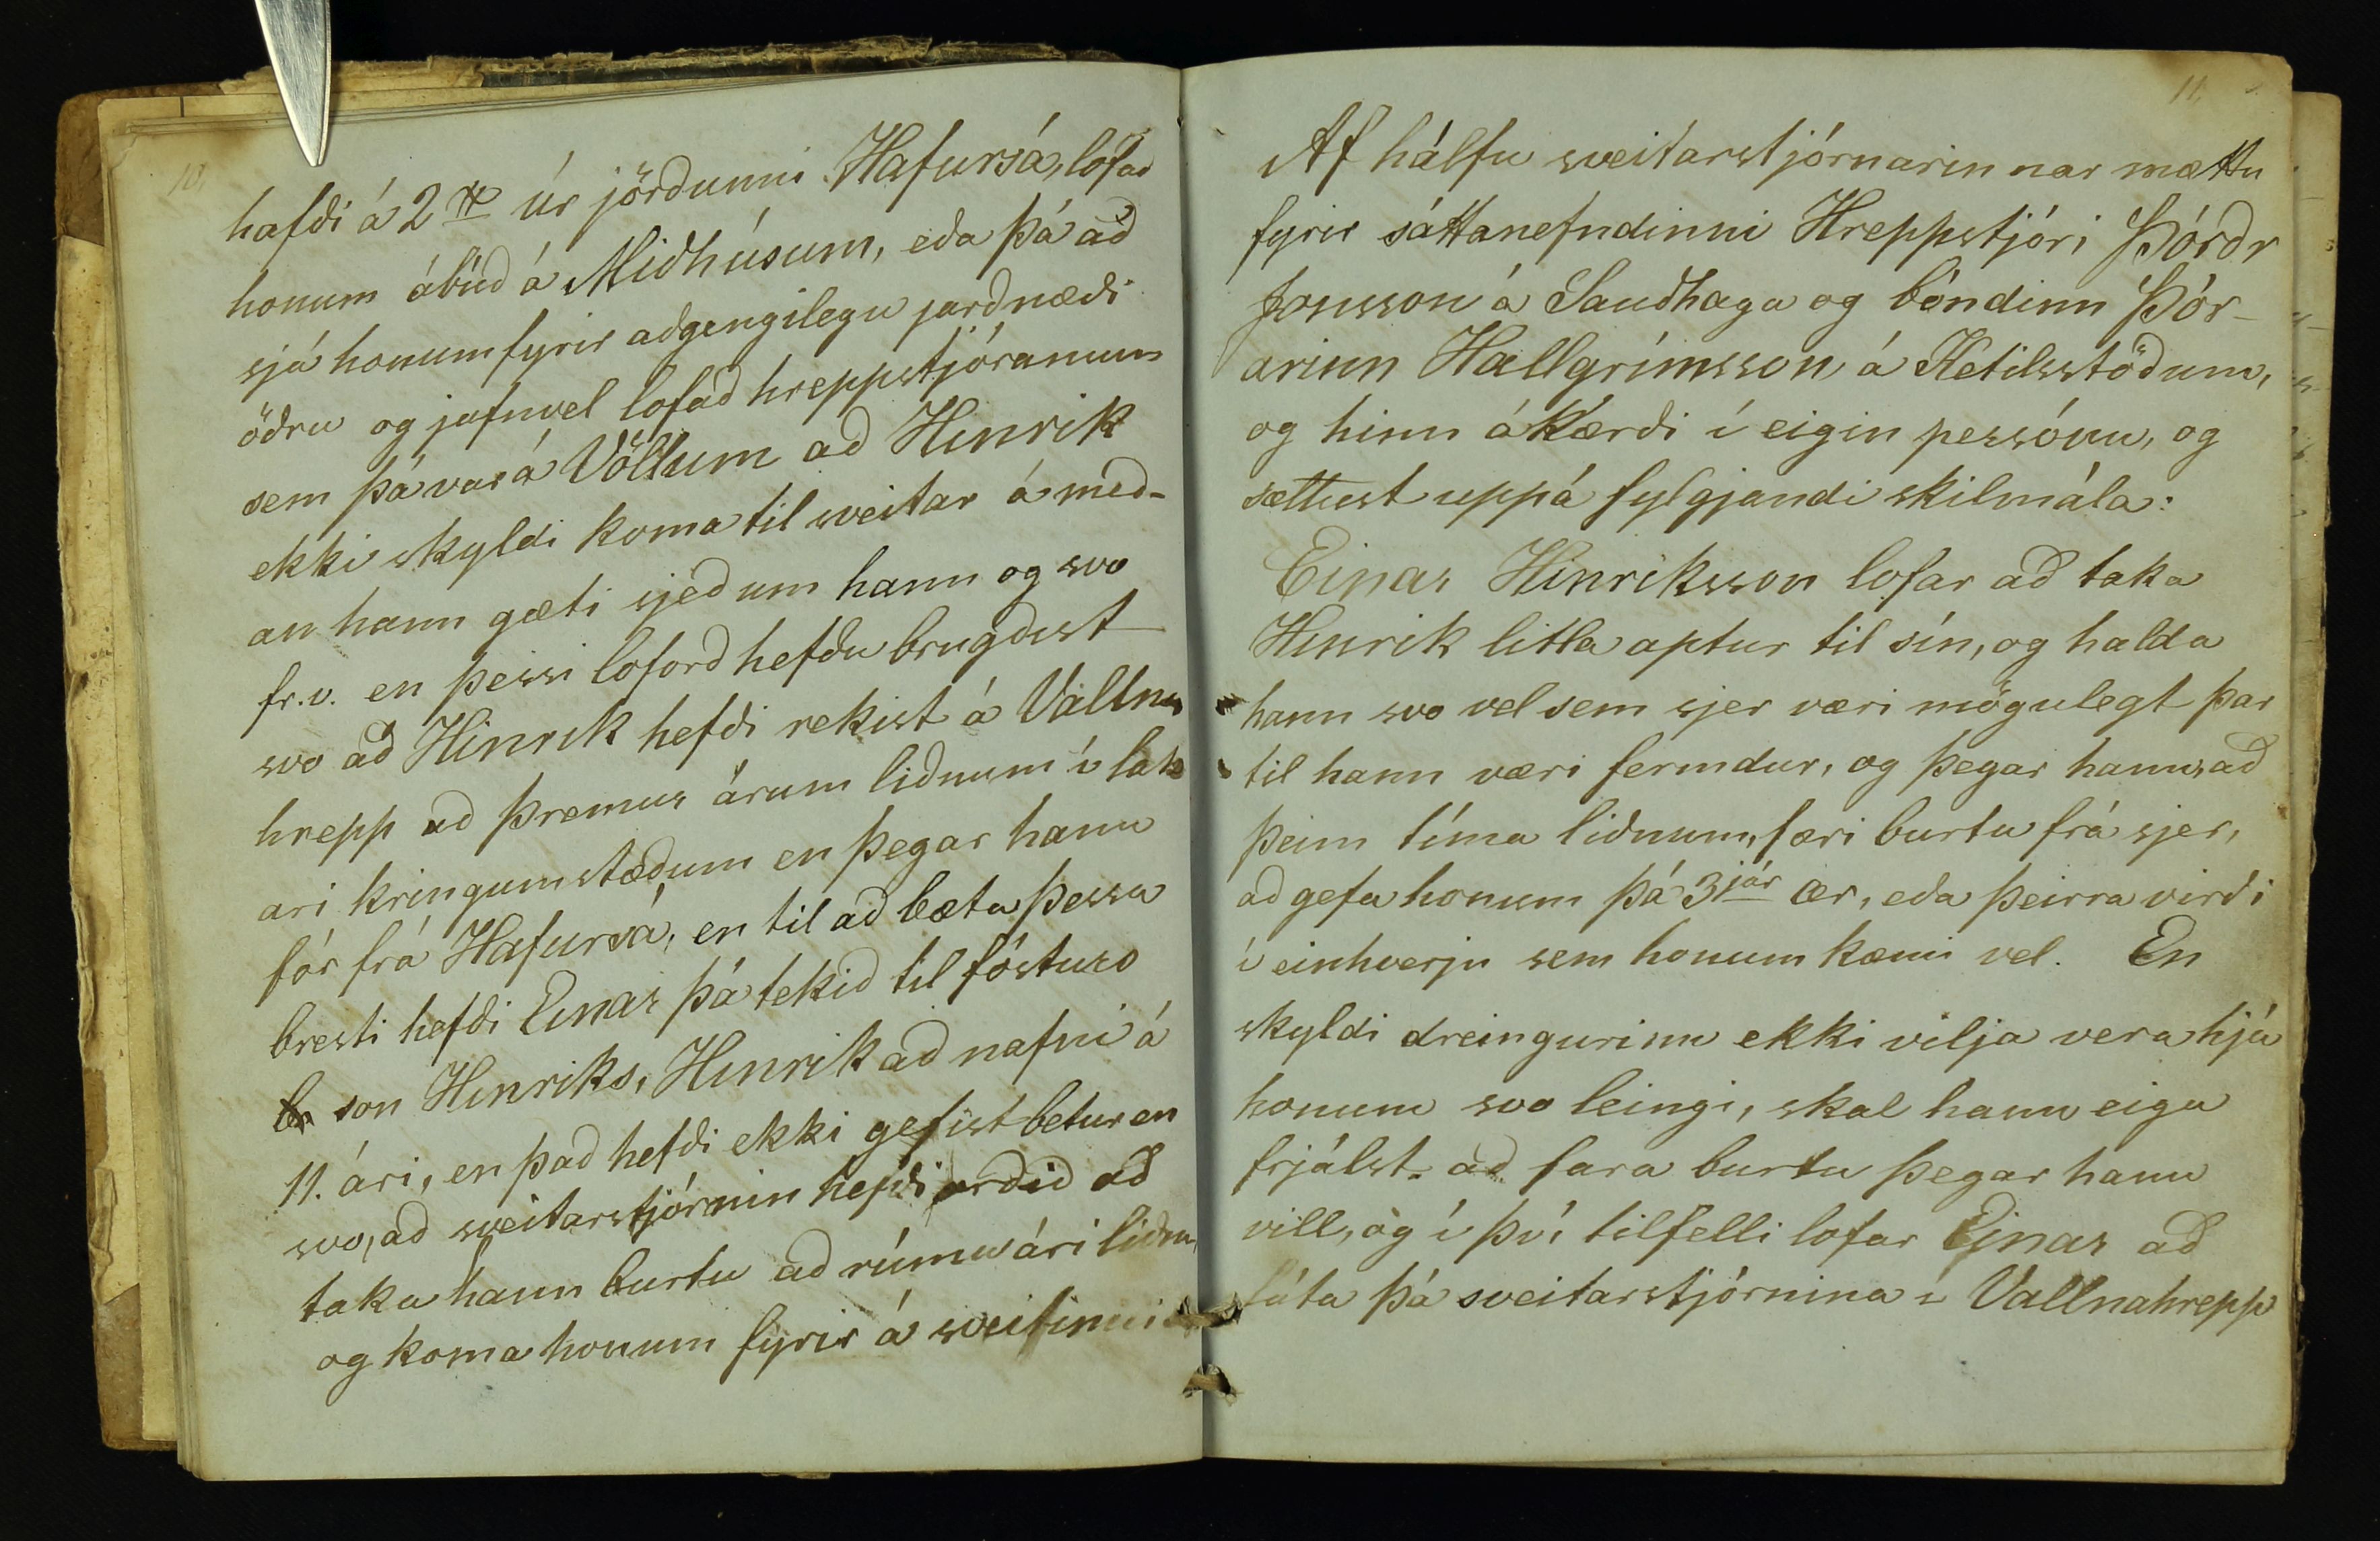 10.
hafði á 2 úr jörðunni Hafursá, lofað
honum ábúð á Miðhúsum, eða þá að
sjá honum fyrir aðgengilegu jarðnæði
öðru og jafnvel lofað hreppstjóranum
sem þá var á Völlum að Hinrik
ekki skyldi koma til sveitar á með-
an hann gæti sjeð um hann og svo
fr.v. en þessi loforð hefðu brugðist
svo að Hinrik hefði rekist á Vallna
hrepp að þremur árum liðnum í lak
ari kringumstæðum en þegar hann
fór frá Hafursá, en til að bæta þessa
bresti hefði Einar þá tekið til fósturs
son Hinriks, Hinrik að nafni á
11. ári, en það hefði ekki gefist betur en
svo, að sveitarstjórnin hefði orðið að
taka hann burtu að rúmu ári liðnu,
og koma honum fyrir á sveitinni
11.
Af hálfu sveitarstjórnarinnar mættu
fyrir sáttanefndinni Hreppstjóri Þórðr
Jonsson á Sauðhaga og bóndinn Þór-
arinn Hallgrímsson á Ketilsstöðum,
og hinn ákærði í eigin persónu, og
sættust uppá fylgjandi skilmála:
Einar Hinriksson lofar að taka
Hinrik litla aptur til sín, og halda
hann svo vel sem sjer væri mögulegt þar
til hann væri fermdur, og þegar hann, að
þeim tíma liðnum, færi burtu frá sjer,
að gefa honum þá 3jár ær, eða þeirra virði
í einhverju sem honum kæmi vel. En
skyldi dreingurinn ekki vilja vera hjá
honum svo leingi, skal hann eiga
frjálst að fara burtu þegar hann
vill, og í því tilfelli lofar Einar að
láta þá sveitarstjórnina í Vallnahrepp